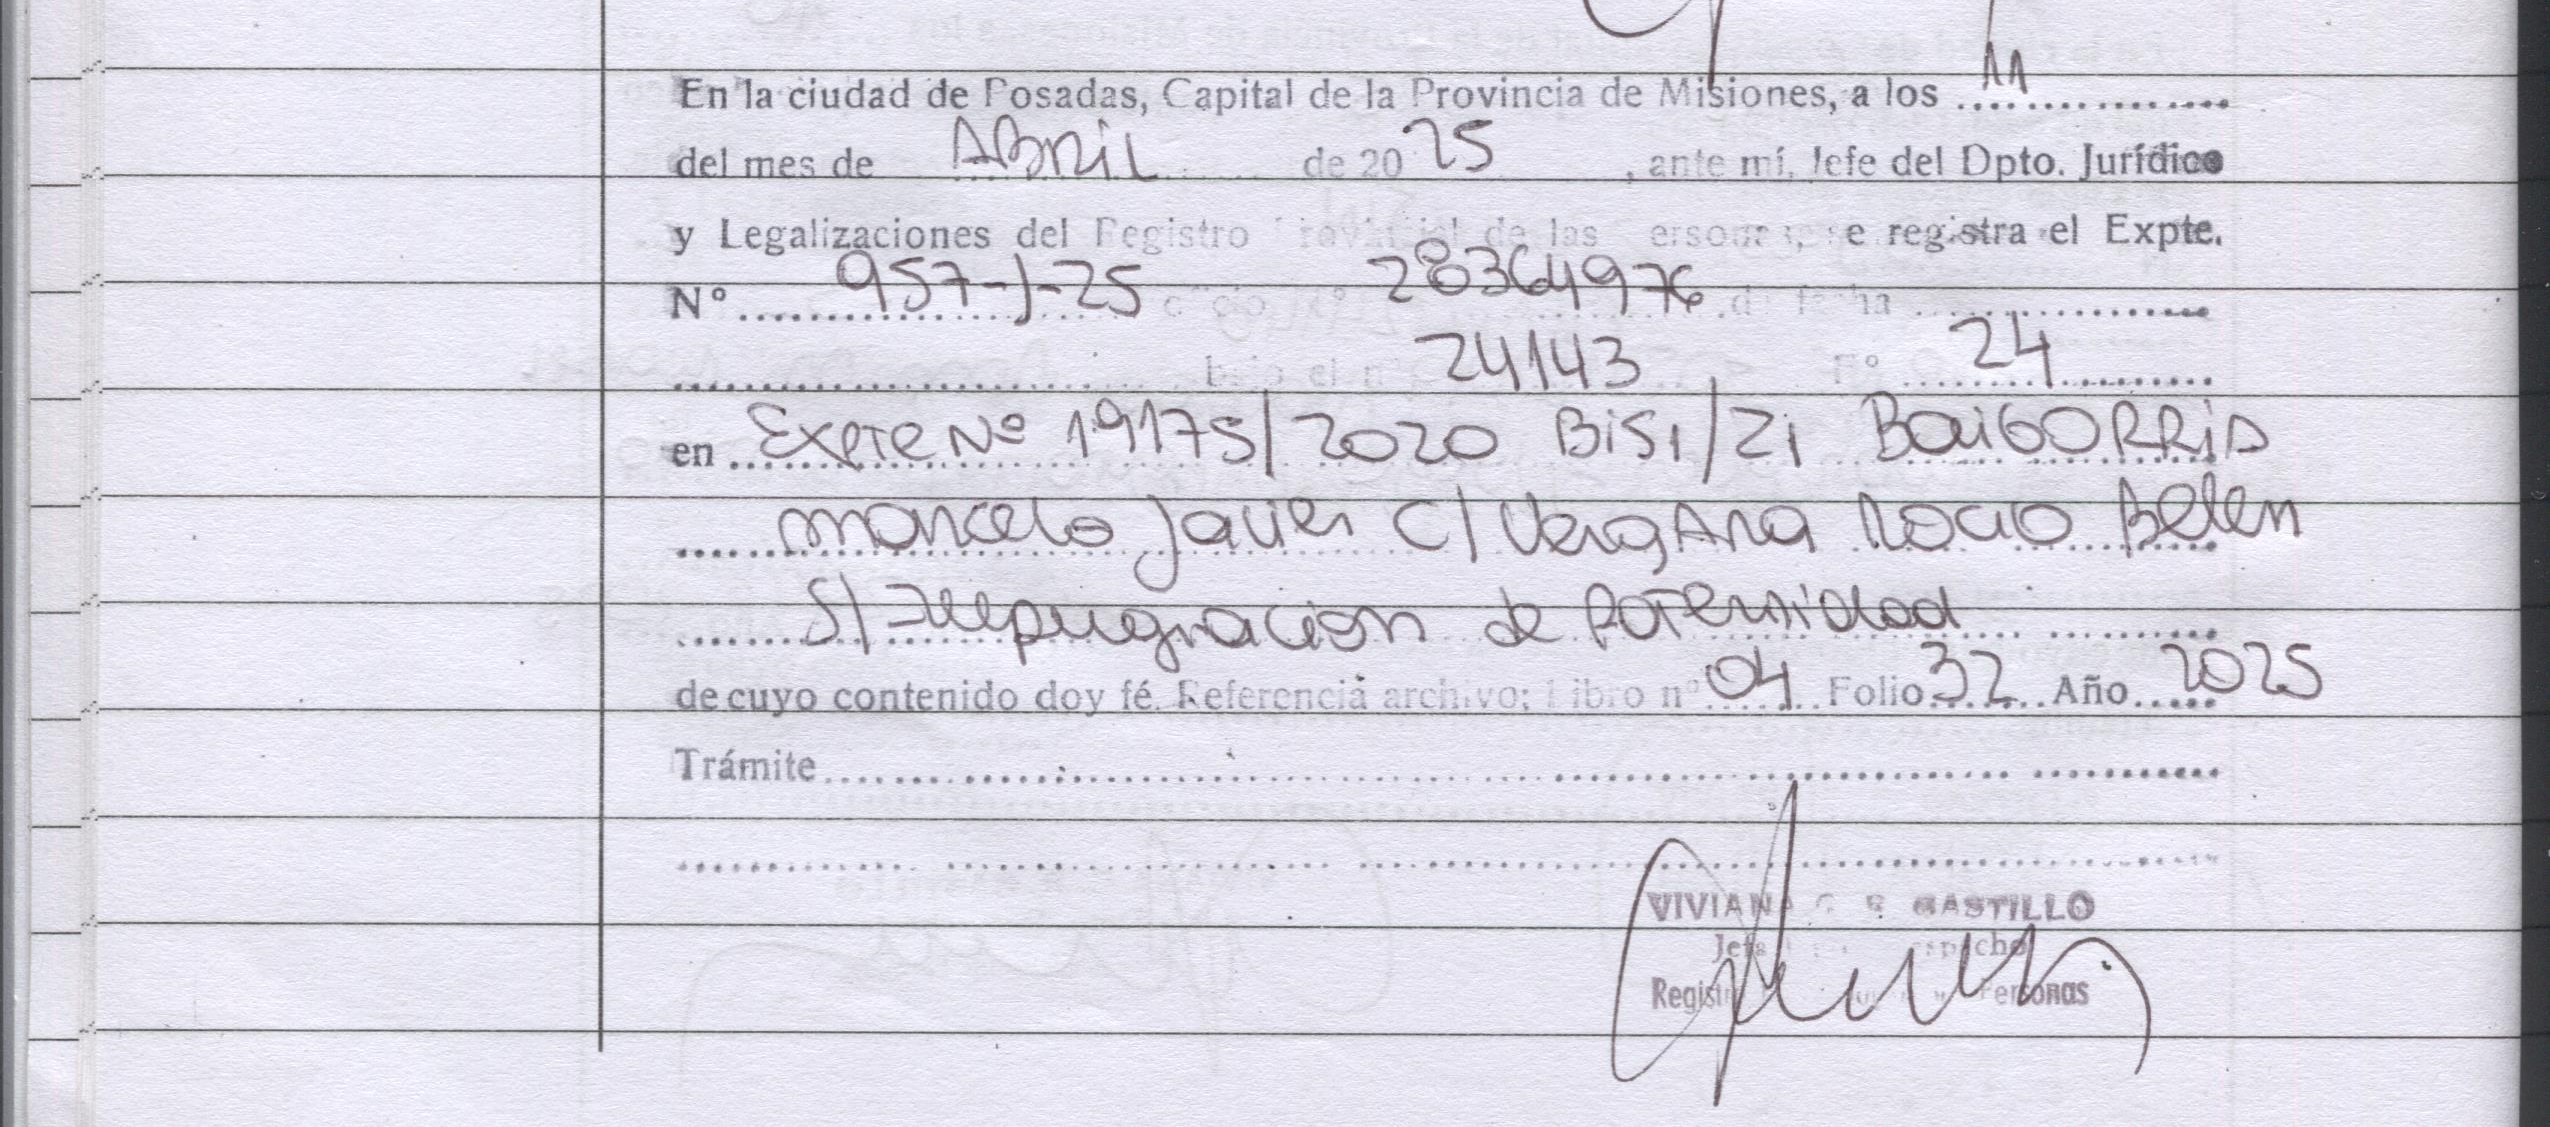 En la ciudad de Posadas, Capital de la Provincia de Misiones, a los 11
del mes de ABRIL de 2025, ante mí, Jefe del Dpto. Jurídico
y Legalizaciones del Registro Provincial de las Personas, se registra el Expte.
Nº 957-J-25 oficio Nº 28364976 de fecha
bajo el nº 24143, Fº 24
en Expte Nº 19175/2020 Bis1/21 BaiGORRia
marcelo Javier C/ VergAra Rocio Belen
S/ Impugnacion de Paternidad
de cuyo contenido doy fé. Referencia archivo; Libro nº 04 Folio 32 Año 2025
Trámite
VIVIANA CASTILLO
Registro Personas